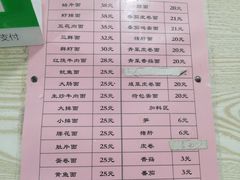 鳝片面 38元 面 20元
虾排面 38元 番茄皮卷面 21元
五花肉面 33元 番茄鸡蛋面 21元
三鲜面 32元 猪肝面 20元
鲜虾面 30元 荠菜皮卷面 20元
红烧牛肉面 30元 青菜香菇面 20元
鱿鱼面 30元
大肠面 25元 咸菜皮卷面 20元
生炒牛肉面 25元 荷包蛋面 20元
大排面 25元 加料区
小排面 25元 笋 6元
腰花面 25元 猪肝 6元
肚片面 25元 皮卷
蛋卷面 25元 香菇 3元
黄鱼面 25元 番茄 3元
支付